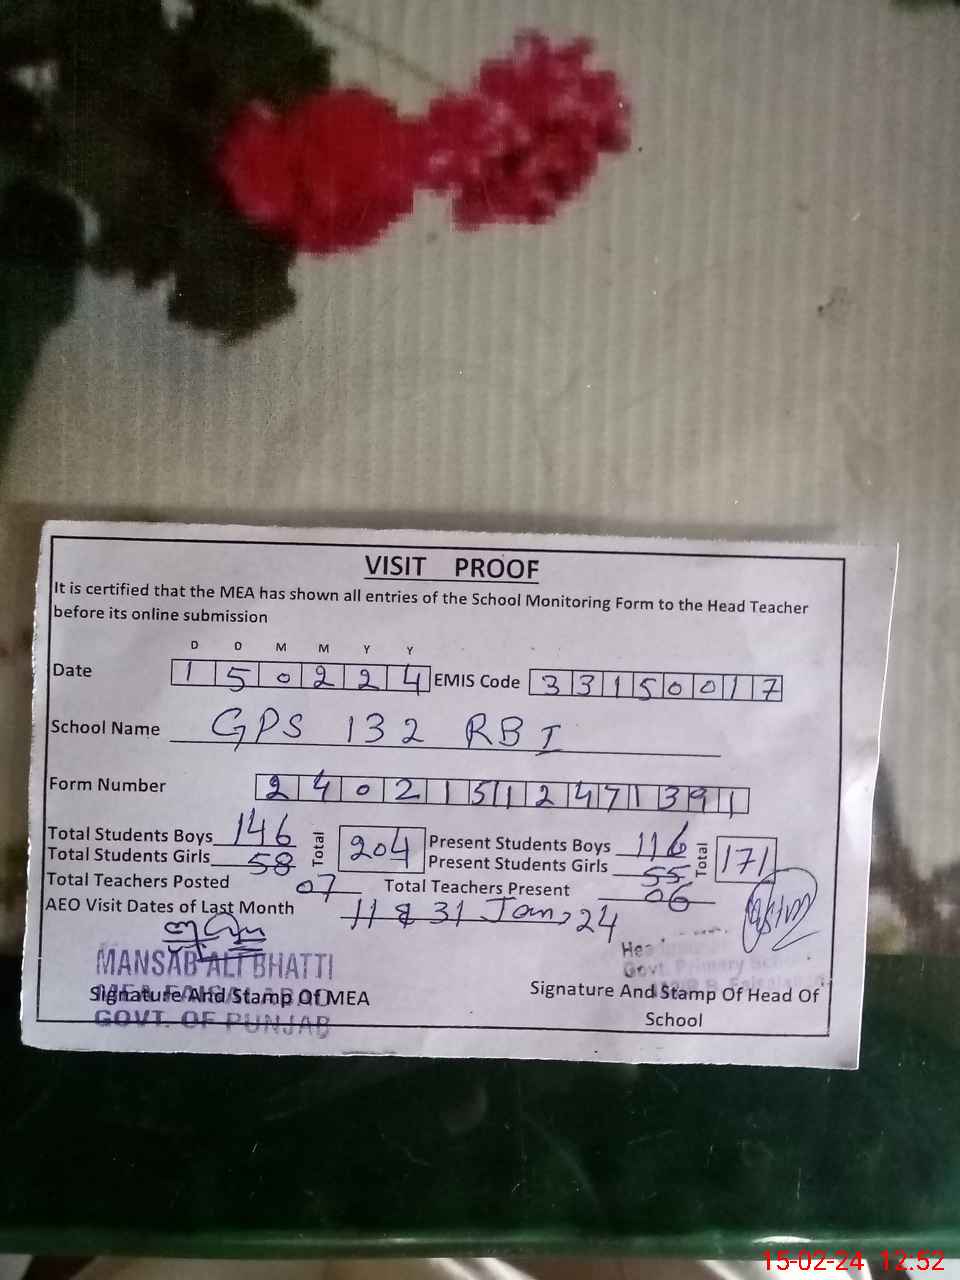 VISIT PROOF
It is certified that the MEA has shown all entries of the School Monitoring Form to the Head Teacher
before its online submission
D D M M Y Y
Date 1 5 0 2 2 4 EMIS Code 3 3 1 5 0 0 1 7
School Name GPS 132 RB I
Form Number 2 4 0 2 1 5 1 2 4 7 1 3 9 1
Total Students Boys 146 Total 204 Present Students Boys 116 Total 171
Total Students Girls 58 Present Students Girls 55
Total Teachers Posted 07 Total Teachers Present 06
AEO Visit Dates of Last Month 11 & 31 Jan, 24
MANSAB ALI BHATTI
MEA FAISALABAD
Signature And Stamp Of MEA
GOVT. OF PUNJAB
Govt. Primary
Signature And Stamp Of Head Of
School
15-02-24 12:52